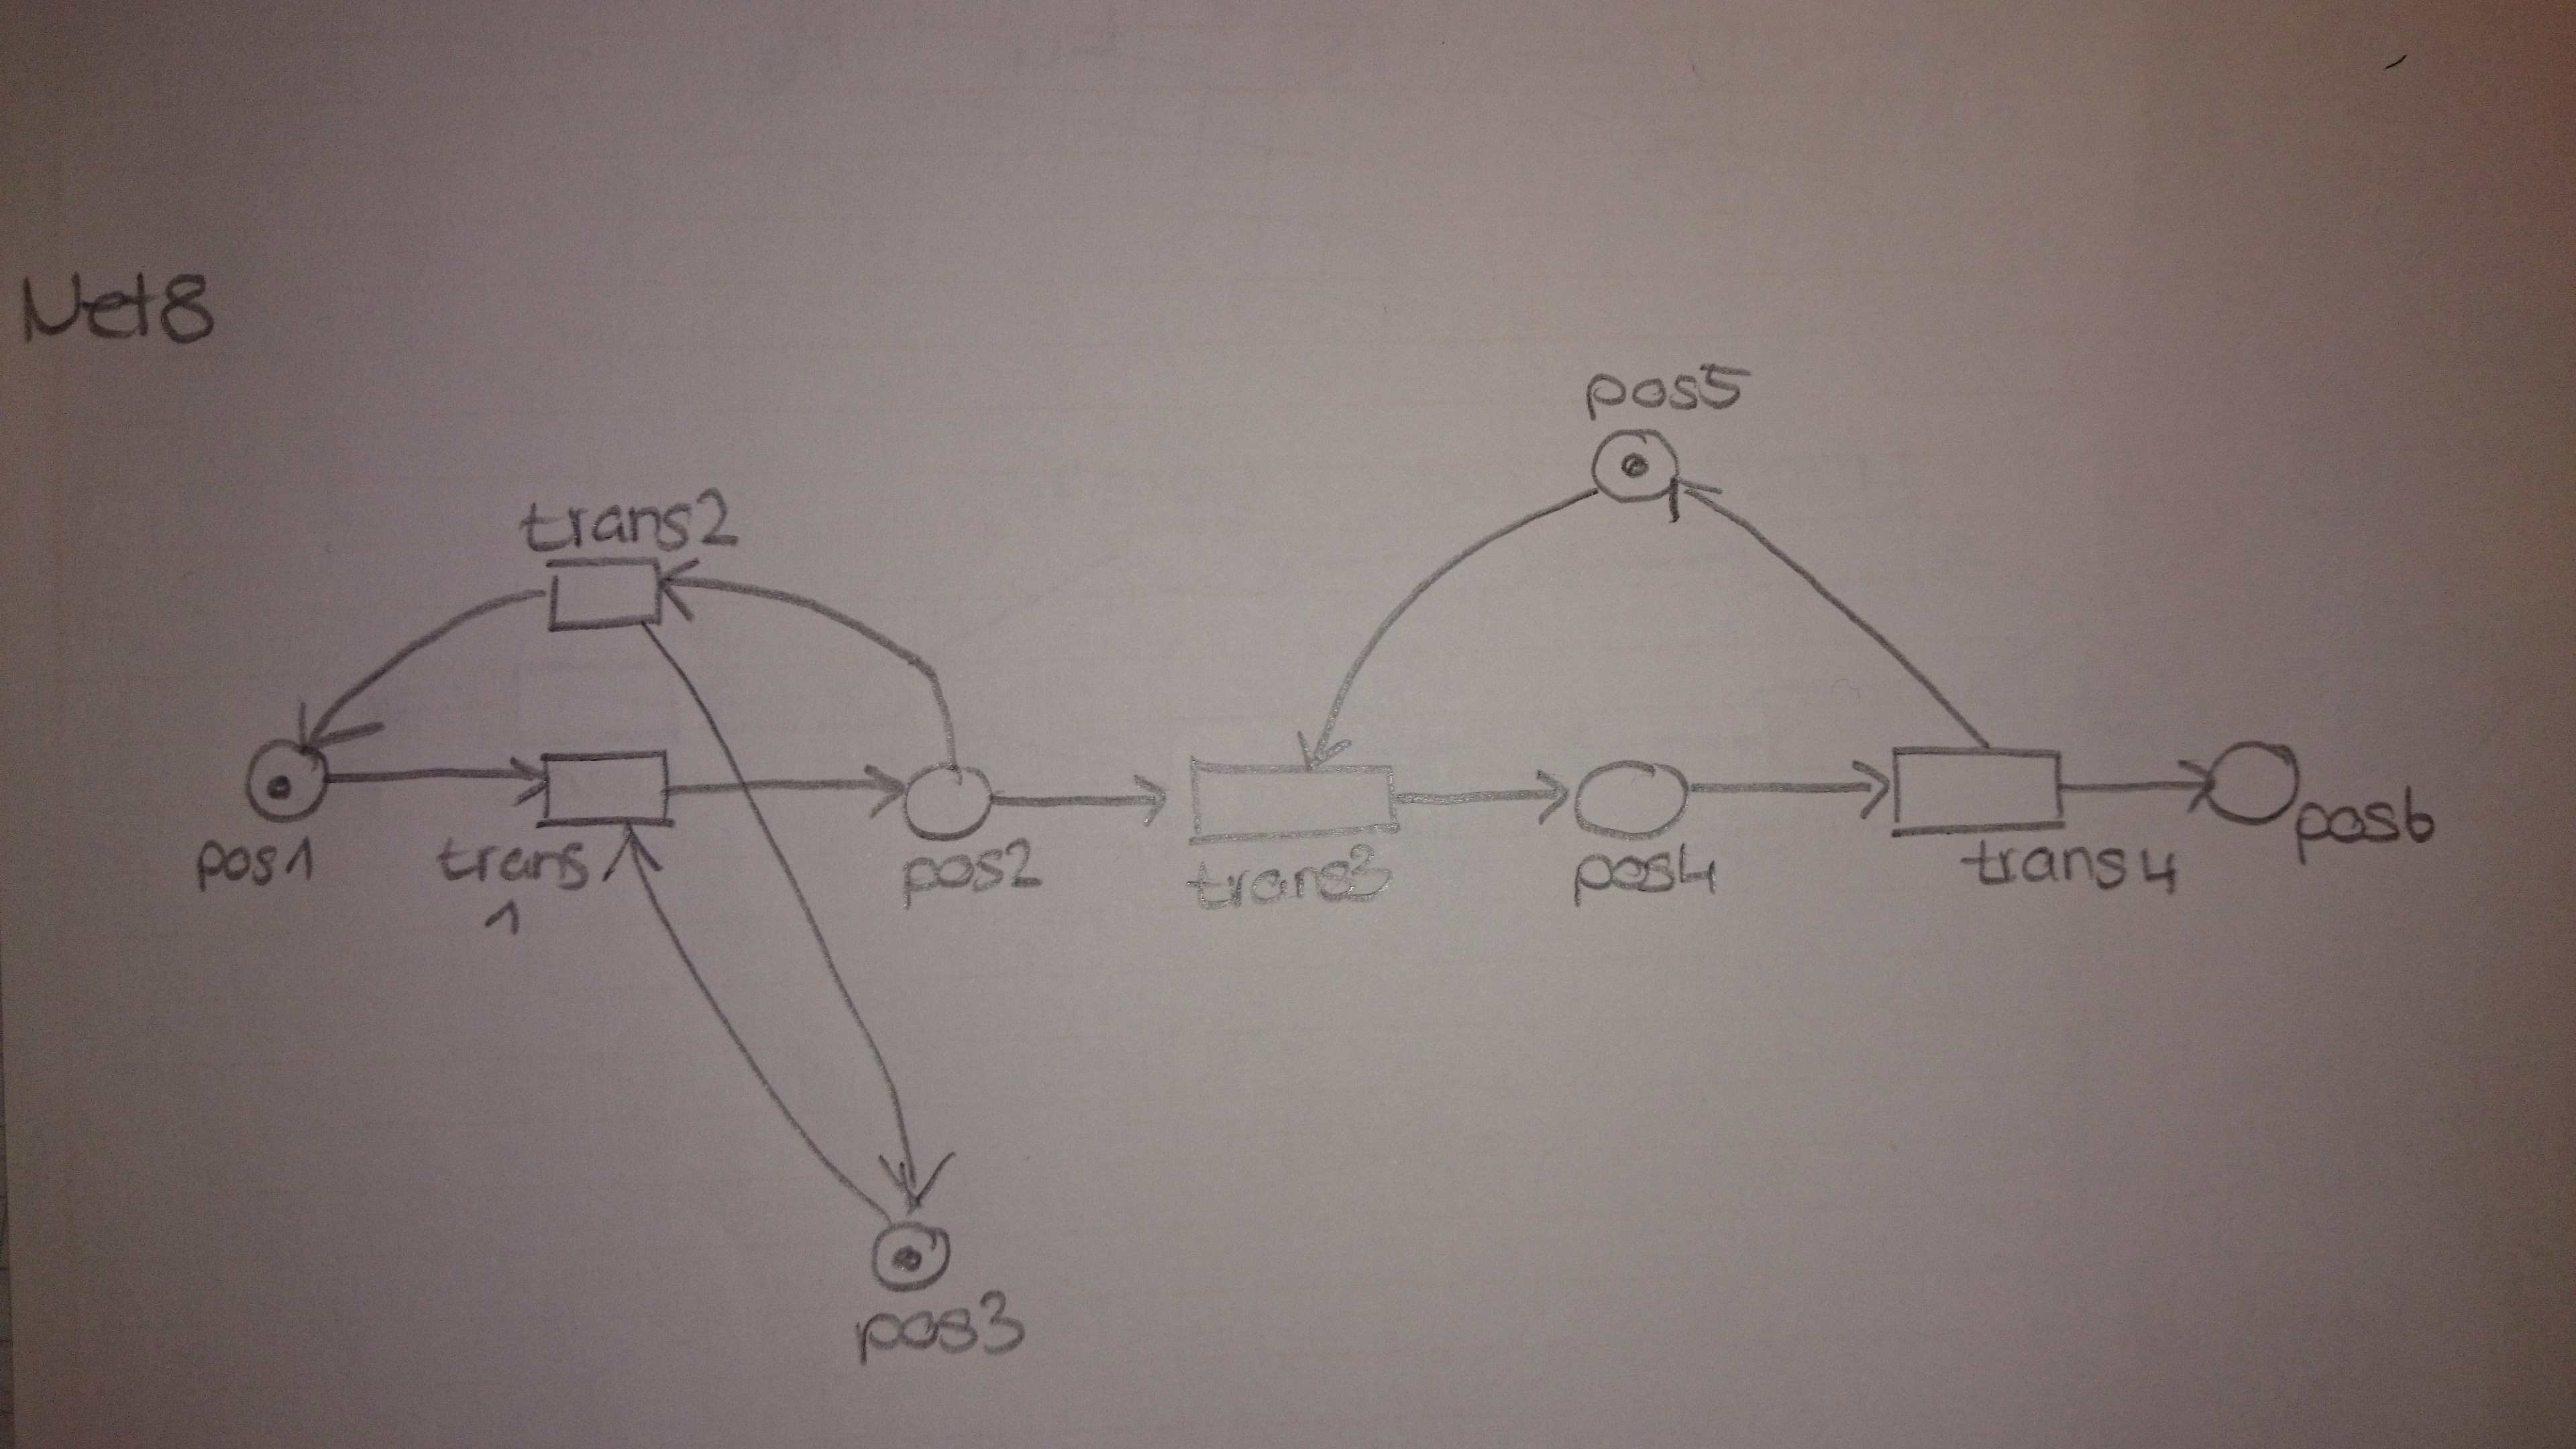 Net8
pos5
trans2
pos1
trans
1
pos2
trans3
pos4
trans4
pos6
pos3